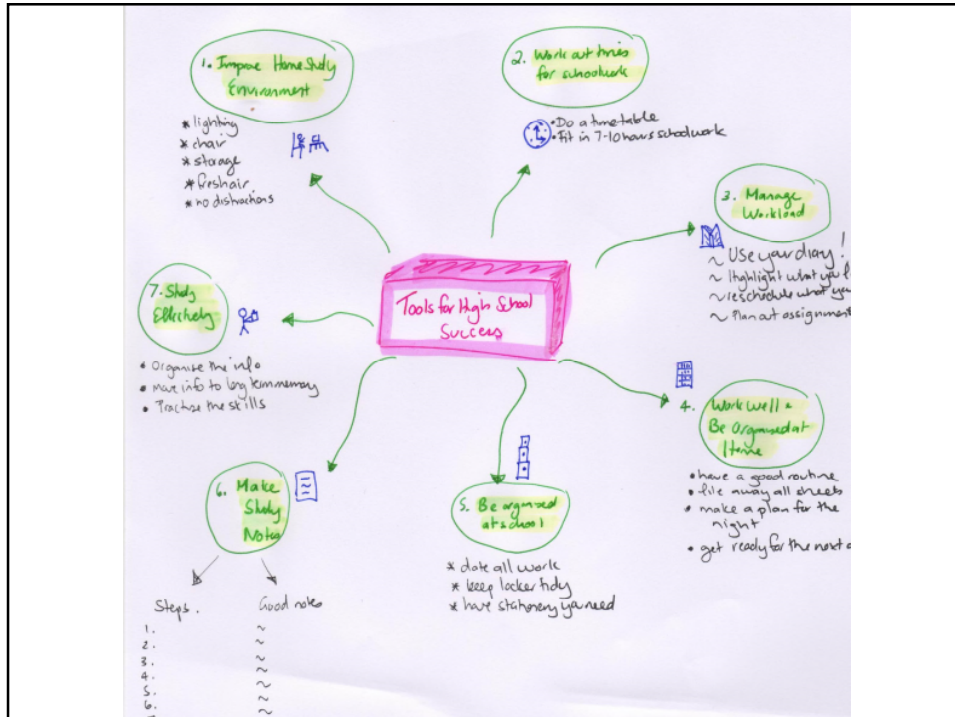 Tools for High School
Success
1. Improve Home Study
Environment
* lighting
* chair
* storage
* fresh air
* no distractions
2. Work out times
for schoolwork
• Do a timetable
• Fit in 7-10 hours schoolwork
3. Manage
Workload
~ Use your diary!
~ Highlight what you
~ reschedule what you
~ Plan out assignment
4. Work Well &
Be Organised at
Home
• have a good routine
• file away all sheets
• make a plan for the
night
• get ready for the next
5. Be organised
at school
* date all work
* keep locker tidy
* have stationery you need
6. Make
Study
Notes
Steps.
1.
2.
3.
4.
5.
6.
Good notes
~
~
~
~
~
~
~
7. Study
Effectively
• Organise the info
• Move info to long term memory
• Practise the skills